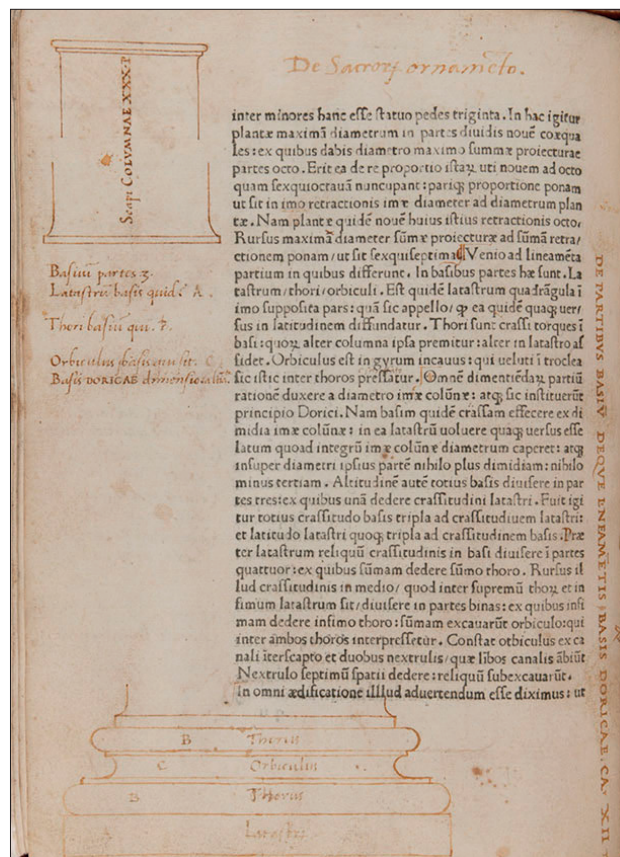 De Sacrorꝫ ornamēto.
Scapi COLVMNAE XXX·P
inter minores hanc esse statuo pedes triginta. In hac igitur
plantæ maximā diametrum in partes diuidis nouē coæqua
les: ex quibus dabis diametro maximo summæ proiecturae
partes octo. Erit ea de re proportio istaꝝ uti nouem ad octo
quam sexquioctauā nuncupant: pariqꝫ proportione ponam
ut sit in imo retractionis imæ diameter ad diametrum plan
tæ. Nam plantæ quidē nouē huius istius retractionis octo,
Rursus maximā diameter sūmæ proiecturæ ad sūmā retra/
ctionem ponam/ut sit sexquiseptima¶Venio ad lineamēta
partium in quibus differunt. In basibus partes hæ sunt. La
tastrum/thori/orbiculi. Est quidē latastrum quadrāgula ī
imo supposita pars: quā sic appello/ꝙ ea quidē quaqꝫ uer/
sus in latitudinem diffundatur. Thori sunt crassi torques ī
basi: quoꝝ alter columna ipsa premitur: alter in latastro as
sidet. Orbiculus est in gyrum incauus: qui ueluti ī troclea
sic istic inter thoros pressatur. Omnē dimentiēdaꝝ partiū
rationē duxere a diametro imæ colūnæ: atqꝫ sic instituerūt
principio Dorici. Nam basim quidē crassam effecere ex di
midia imæ colūnæ: in ea latastrū uoluere quaqꝫ uersus esse
latum quoad integrū imæ colūnæ diametrum caperet: atqꝫ
insuper diametri ipsius partē nihilo plus dimidiam: nihilo
minus tertiam. Altitudinē autē totius basis diuisere in par
tes tres: ex quibus unā dedere crassitudini latastri. Fuit igi
tur totius crassitudo basis tripla ad crassitudiuem latastri:
et latitudo latastri quoqꝫ tripla ad crassitudinem basis. Præ
ter latastrum reliquū crassitudinis in basi diuisere ī partes
quattuor: ex quibus sūmam dedere sūmo thoro. Rursus il
lud crassitudinis in medio/quod inter supremū thoꝝ et in
fimum latastrum sit/diuisere in partes binas: ex quibus infi
mam dedere infimo thoro: sūmam excauarūt orbiculo: qui
inter ambos thoros interpressetur. Constat otbiculus ex ca
nali īterscapto et duobus nextrulis/quæ lībos canalis ābiūt
Nextrulo septimū spatii dedere: reliquū subexcauarūt.
In omni ædificatione illlud aduertendum esse diximus: ut
Basiuū partes 3.
Latastrū basis quid. A.
Thori basiū qui. 7.
Orbiculus basis quid sit. C
Basis DORICAE dimensio
DE PARTIBVS BASIV̄ DEQVE LINEAMĒTIS BASIS DORICAE. CAº XII
B Thorus
C Orbiculus
B Thorus
Latastrū